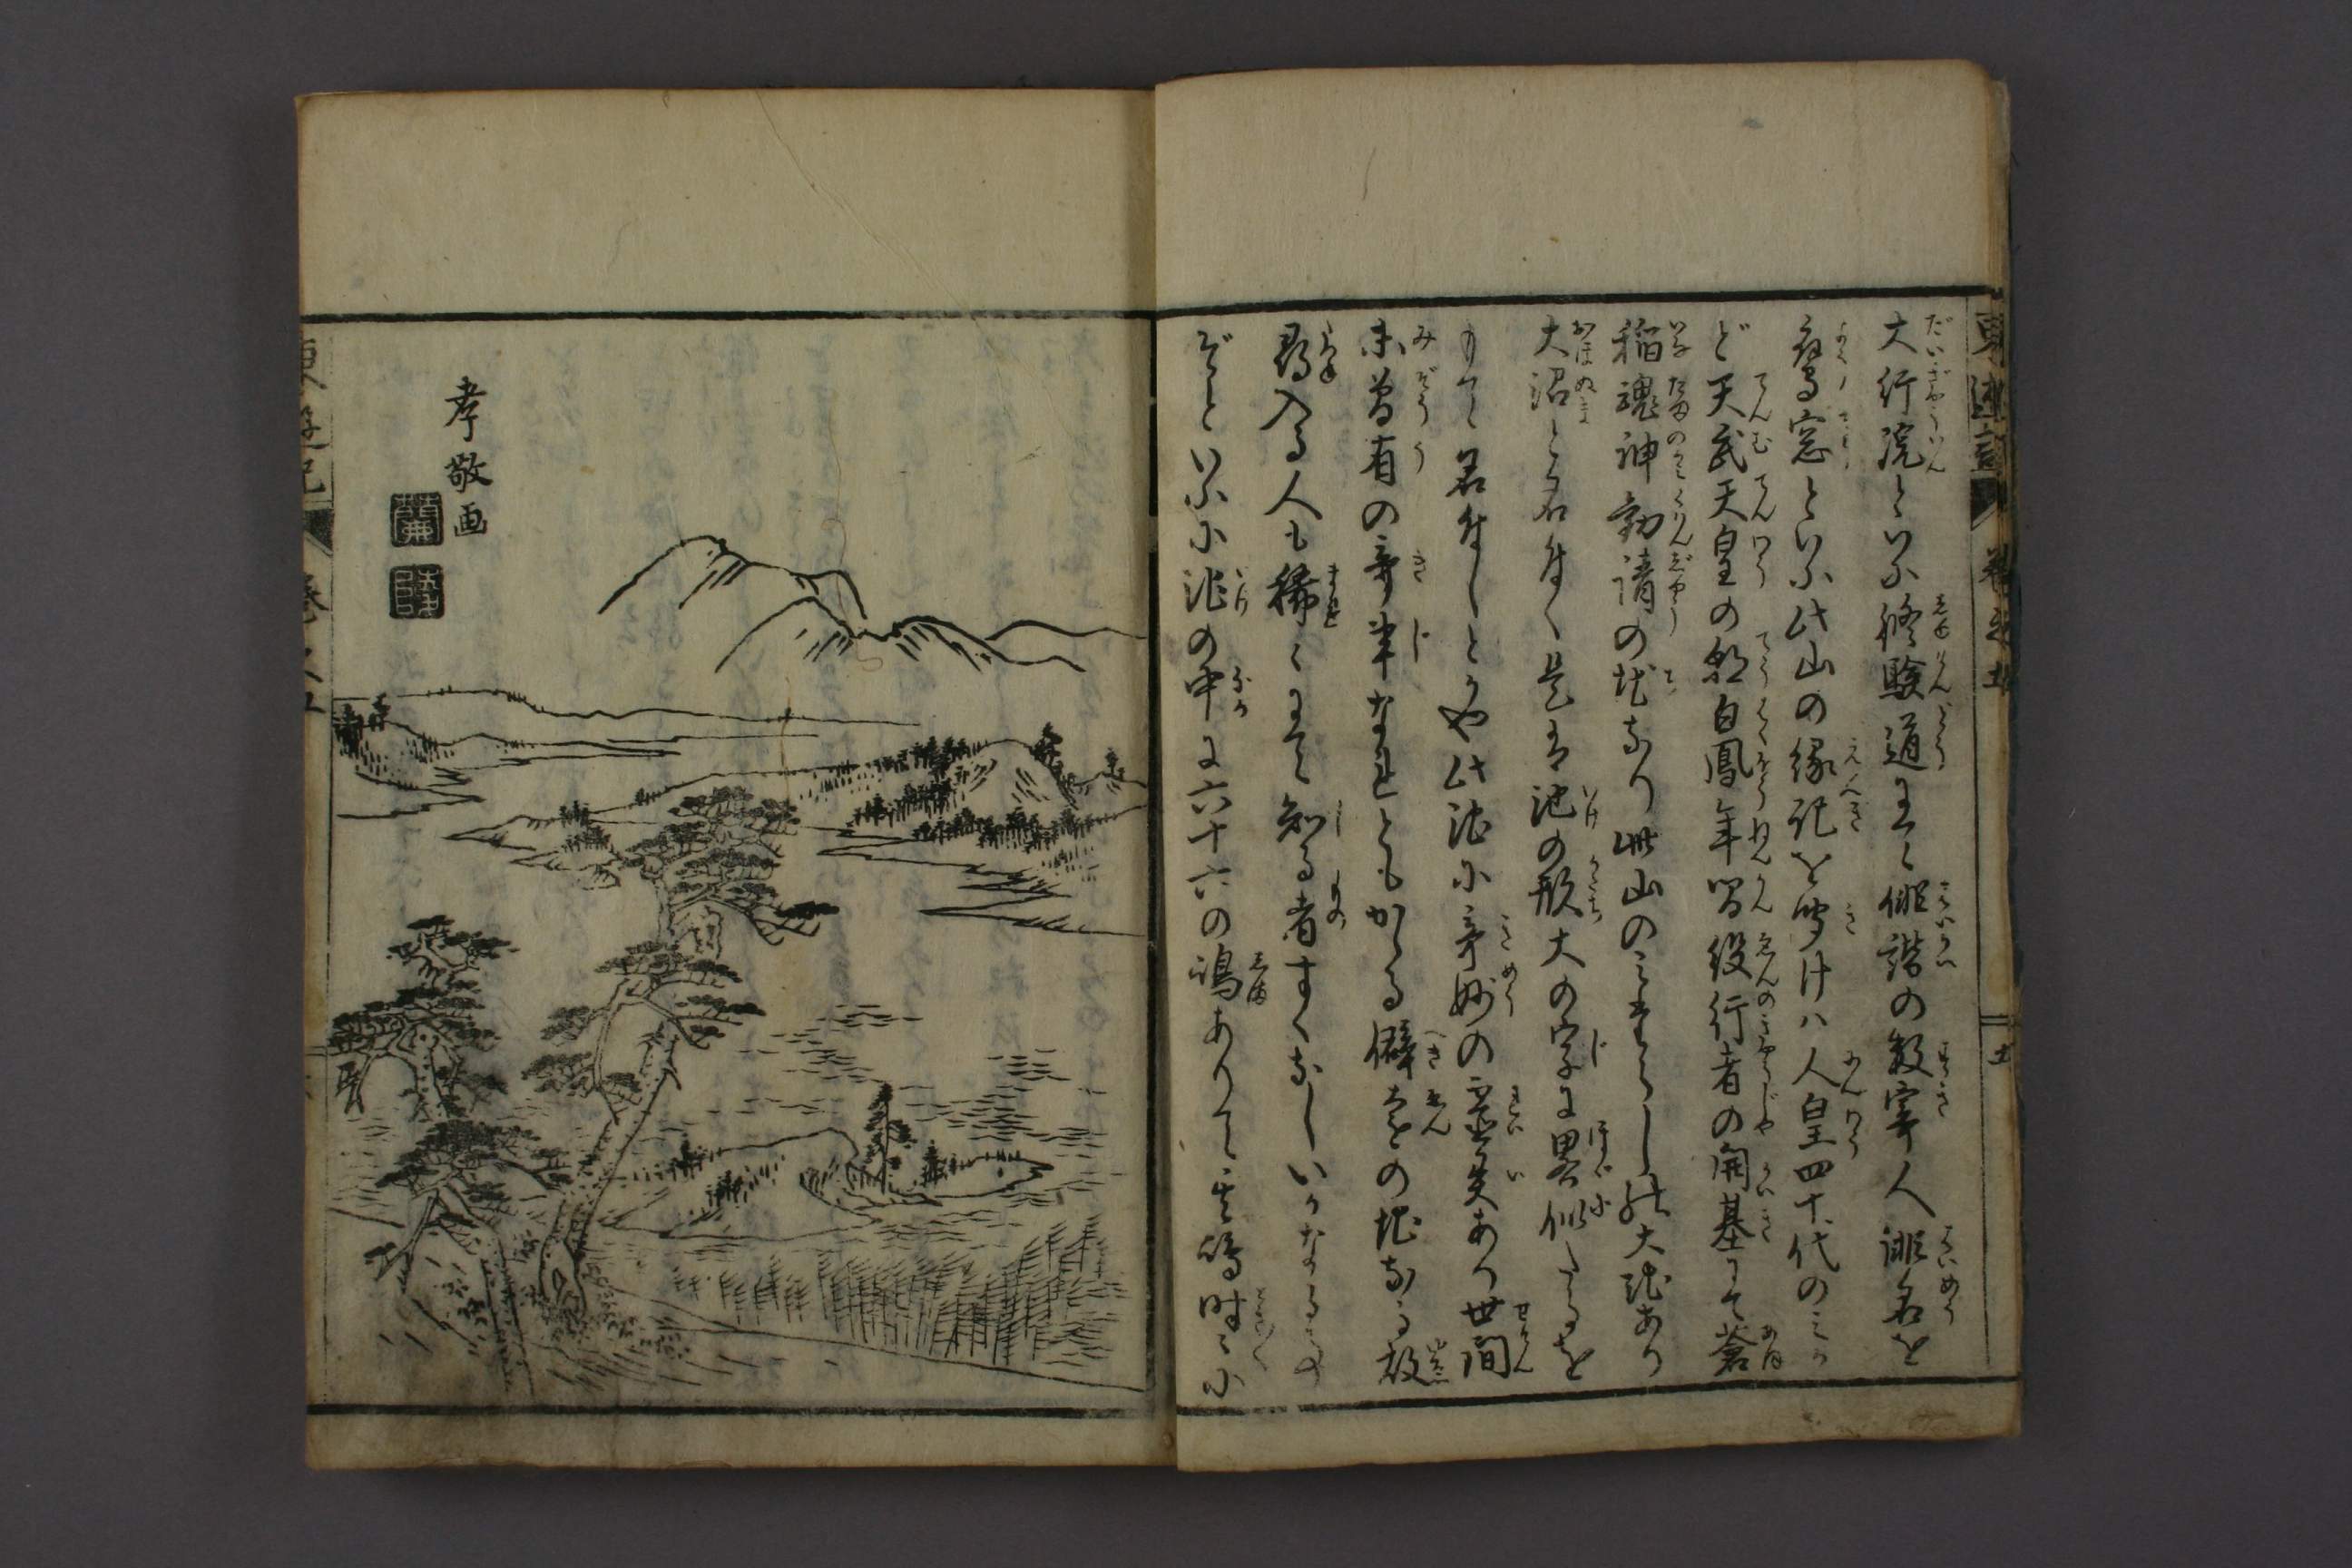 東遊記 巻之五
大行院といふ修験道にて俳諧の数寄人誹名を
鷹窓といふ此山の縁記を聞けハ人皇四十代のみか
ど天武天皇の朝白鳳年間役行者の開基にて蒼
稲魂神勧請の地なり此山のうしろに大池あり
大沼と名付く是は池の形大の字に畧似たるを
もつて名付しとかや此池に奇妙の霊異あり世間
未曾有の奇事なれともかゝる僻遠の地なる故
尋入る人も稀にして知る者すくなしいかなるゆへ
ぞといふに池の中に六十六の嶋ありて其嶋時々に
孝敬画
東遊記 巻之五